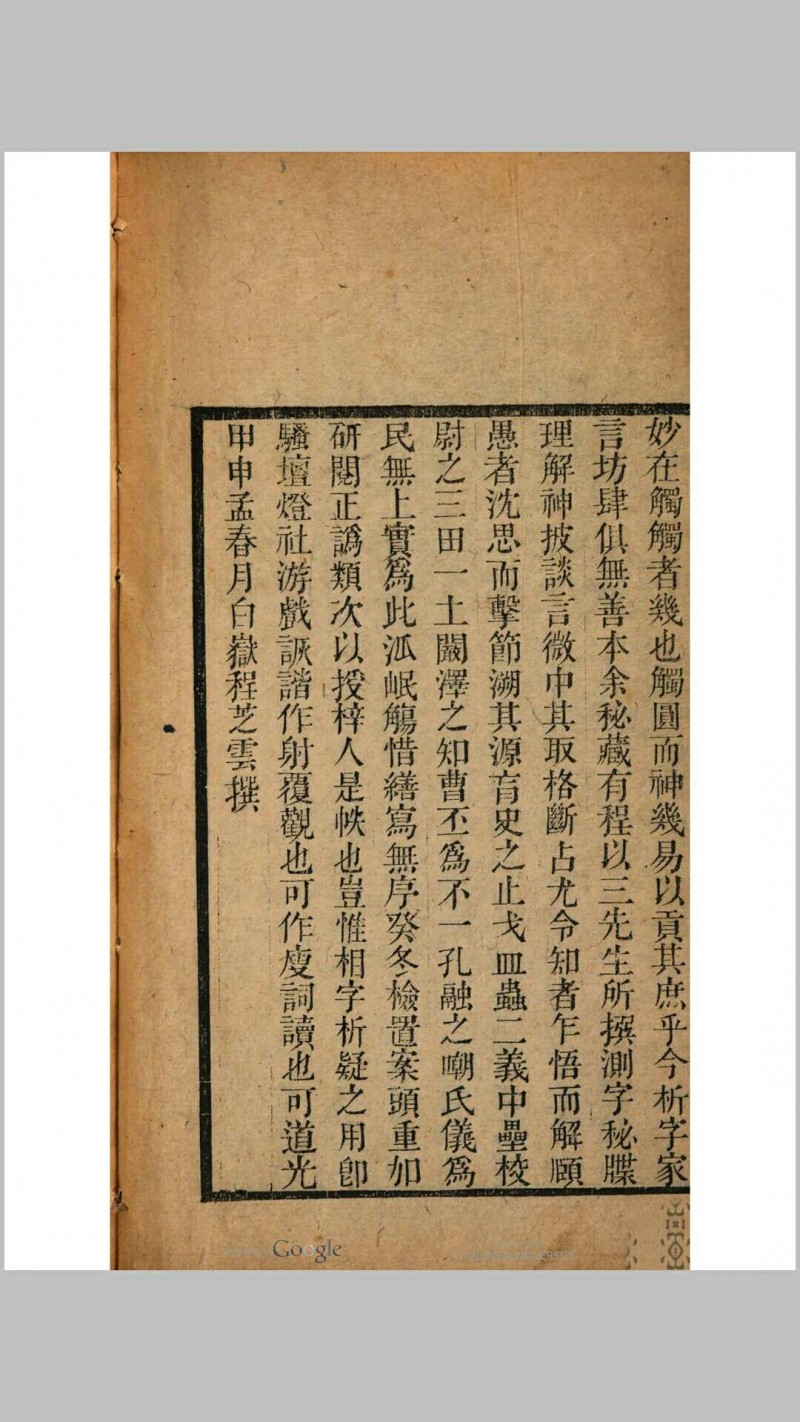 妙在觸觸者幾也觸圓而神幾易以貢其庶乎今析字家
言坊肆俱無善本余秘藏有程以三先生所撰測字秘牒
理解神披談言微中其取格斷占尤令知者乍悟而解頤
愚者沈思而擊節溯其源肓史之止戈皿蟲二義中壘校
尉之三田一土闞澤之知曹丕為不一孔融之嘲氏儀為
民無上實為此泒岷觴惜繕寫無序癸冬檢置案頭重加
研閱正譌類次以授梓人是帙也豈惟相字析疑之用卽
騷壇燈社游戲詼諧作射覆觀也可作廋詞讀也可道光
甲申孟春月白嶽程芝雲撰
Google